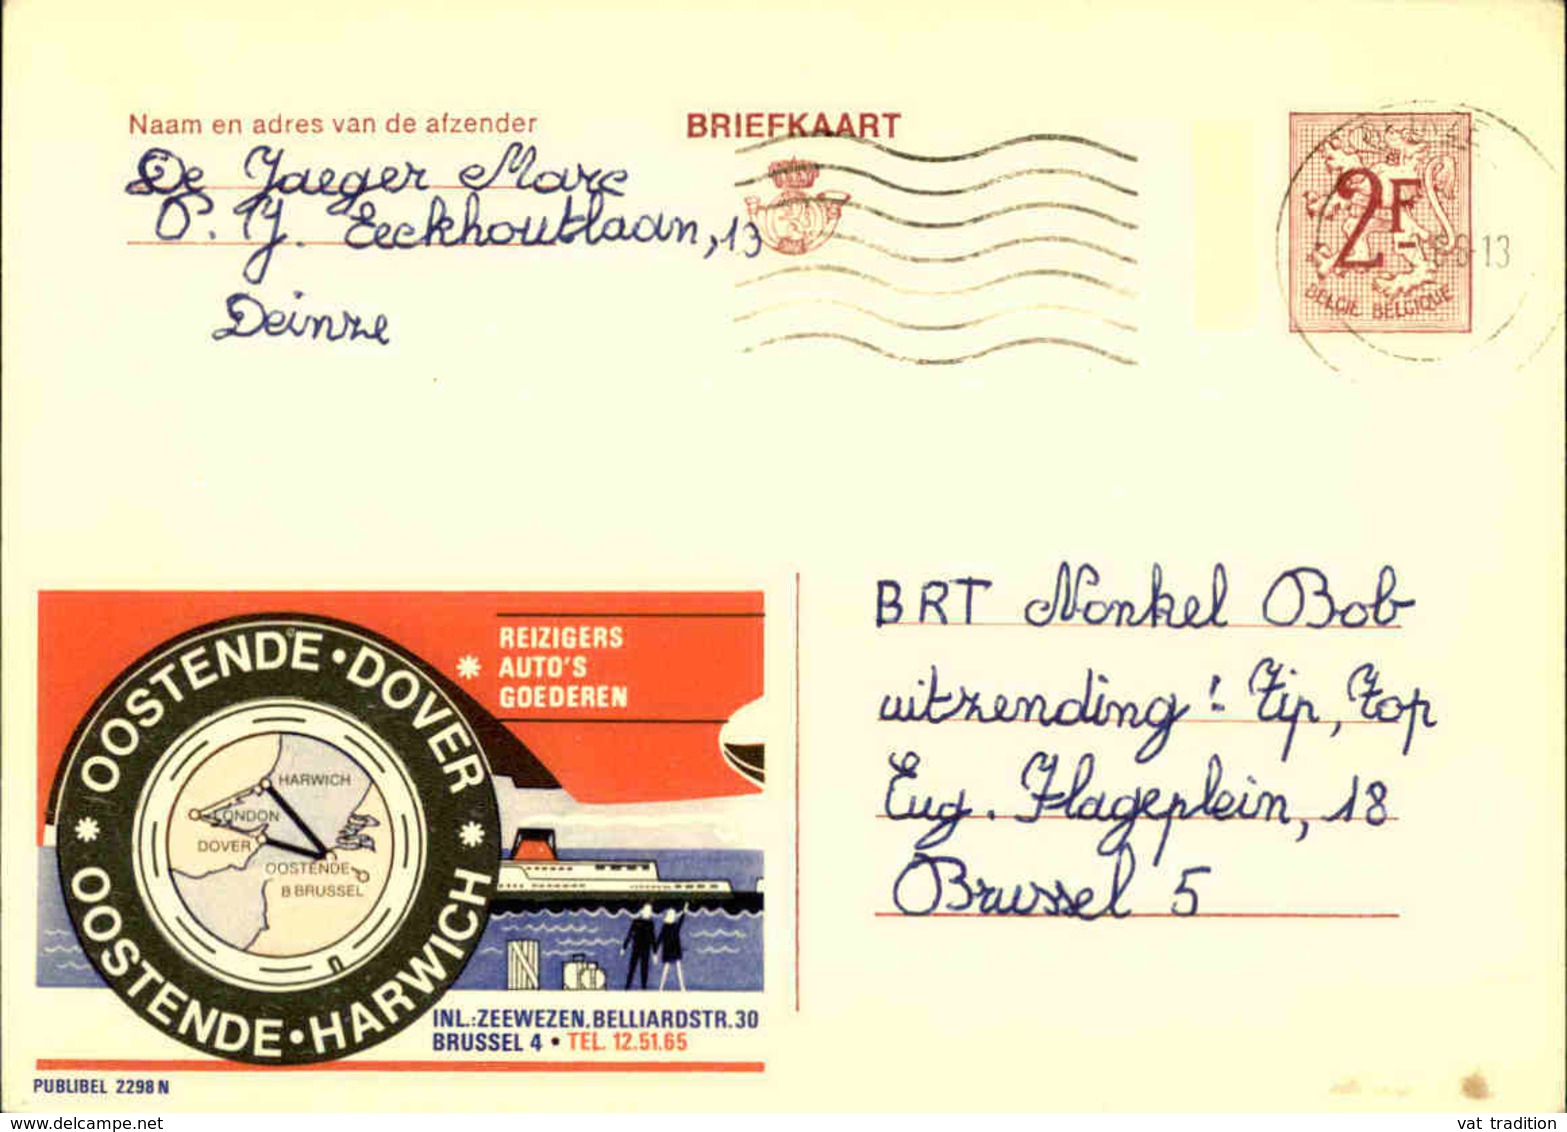 Naam en adres van de afzender
BRIEFKAART
De Jaeger Marc
O. IJ. Eeckhoutlaan, 13
Deinze
2F
BELGIE BELGIQUE
6-13
OOSTENDE • DOVER
OOSTENDE • HARWICH
HARWICH
LONDON
DOVER
OOSTENDE
BRUSSEL
REIZIGERS
* AUTO'S
GOEDEREN
INL.:ZEEWEZEN.BELLIARDSTR.30
BRUSSEL 4 • TEL. 12.51.65
PUBLIBEL 2298 N
BRT Nonkel Bob
uitzending: Zip, Zop
Eug. Flageplein, 18
Brussel 5
vat tradition